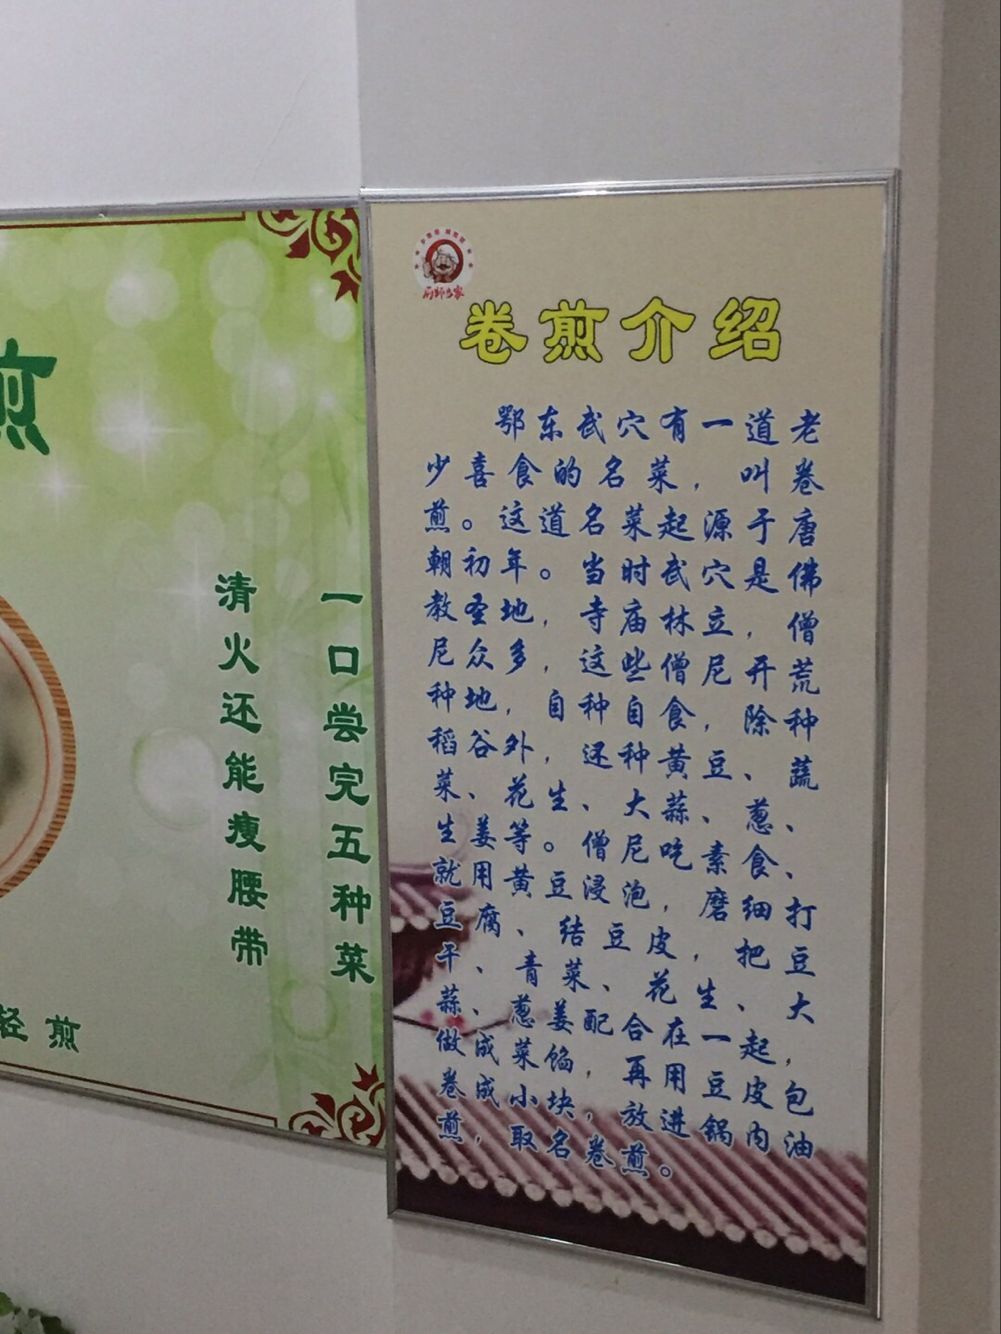 煎
一口尝完五种菜
清火还能瘦腰带
轻煎
厨师当家
卷煎介绍
鄂东武穴有一道老
少喜食的名菜，叫卷
煎。这道名菜起源于唐
朝初年。当时武穴是佛
教圣地，寺庙林立，僧
尼众多，这些僧尼开荒
种地，自种自食，除种
稻谷外，还种黄豆、蔬
菜、花生、大蒜、葱、
生姜等。僧尼吃素食、
就用黄豆浸泡，磨细打
豆腐、结豆皮，把豆
干、青菜、花生、大
蒜、葱姜配合在一起，
做成菜馅，再用豆皮包
卷成小块，放进锅内油
煎，取名卷煎。